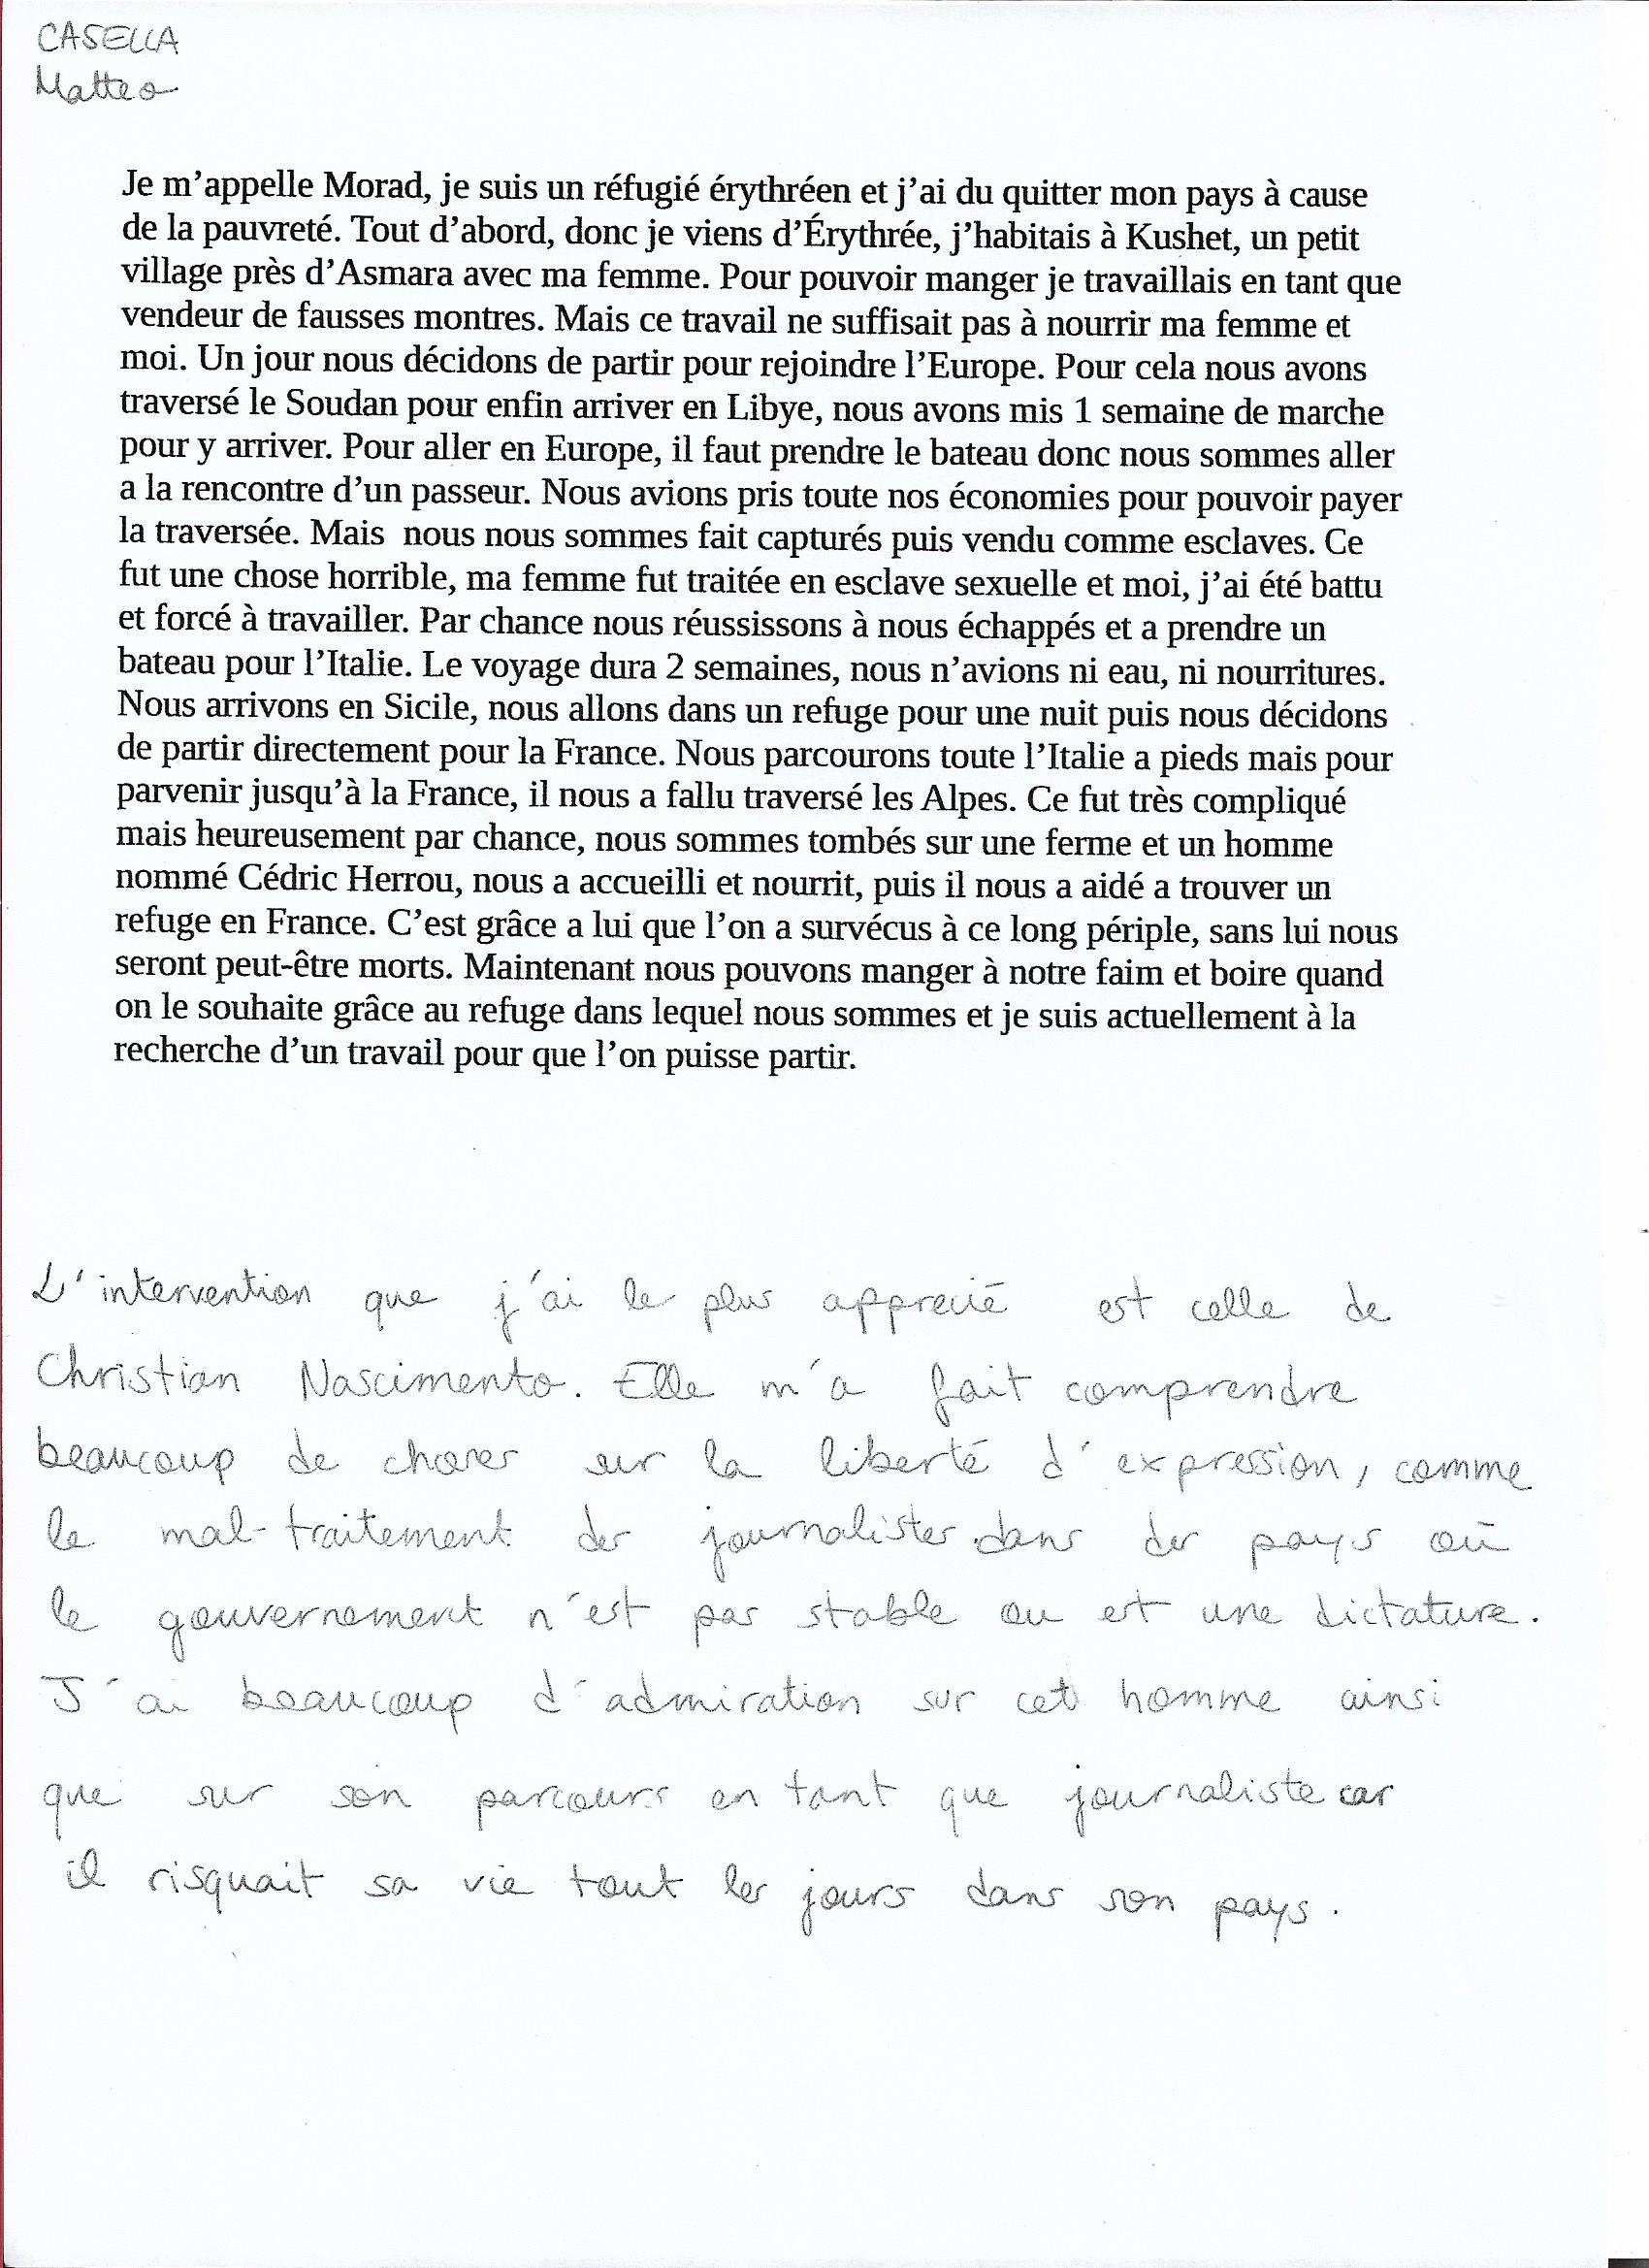 CASELLA
Matteo
Je m’appelle Morad, je suis un réfugié érythréen et j’ai du quitter mon pays à cause
de la pauvreté. Tout d’abord, donc je viens d’Érythrée, j’habitais à Kushet, un petit
village près d’Asmara avec ma femme. Pour pouvoir manger je travaillais en tant que
vendeur de fausses montres. Mais ce travail ne suffisait pas à nourrir ma femme et
moi. Un jour nous décidons de partir pour rejoindre l’Europe. Pour cela nous avons
traversé le Soudan pour enfin arriver en Libye, nous avons mis 1 semaine de marche
pour y arriver. Pour aller en Europe, il faut prendre le bateau donc nous sommes aller
a la rencontre d’un passeur. Nous avions pris toute nos économies pour pouvoir payer
la traversée. Mais  nous nous sommes fait capturés puis vendu comme esclaves. Ce
fut une chose horrible, ma femme fut traitée en esclave sexuelle et moi, j’ai été battu
et forcé à travailler. Par chance nous réussissons à nous échappés et a prendre un
bateau pour l’Italie. Le voyage dura 2 semaines, nous n’avions ni eau, ni nourritures.
Nous arrivons en Sicile, nous allons dans un refuge pour une nuit puis nous décidons
de partir directement pour la France. Nous parcourons toute l’Italie a pieds mais pour
parvenir jusqu’à la France, il nous a fallu traversé les Alpes. Ce fut très compliqué
mais heureusement par chance, nous sommes tombés sur une ferme et un homme
nommé Cédric Herrou, nous a accueilli et nourrit, puis il nous a aidé a trouver un
refuge en France. C’est grâce a lui que l’on a survécus à ce long périple, sans lui nous
seront peut-être morts. Maintenant nous pouvons manger à notre faim et boire quand
on le souhaite grâce au refuge dans lequel nous sommes et je suis actuellement à la
recherche d’un travail pour que l’on puisse partir.
L'intervention que j'ai le plus apprecié est celle de
Christian Nascimento. Elle m'a fait comprendre
beaucoup de choses sur la liberté d'expression, comme
le mal-traitement des journalistes dans des pays où
le gouvernement n'est pas stable ou est une dictature.
J'ai beaucoup d'admiration sur cet homme ainsi
que sur son parcours en tant que journaliste car
il risquait sa vie tout les jours dans son pays.